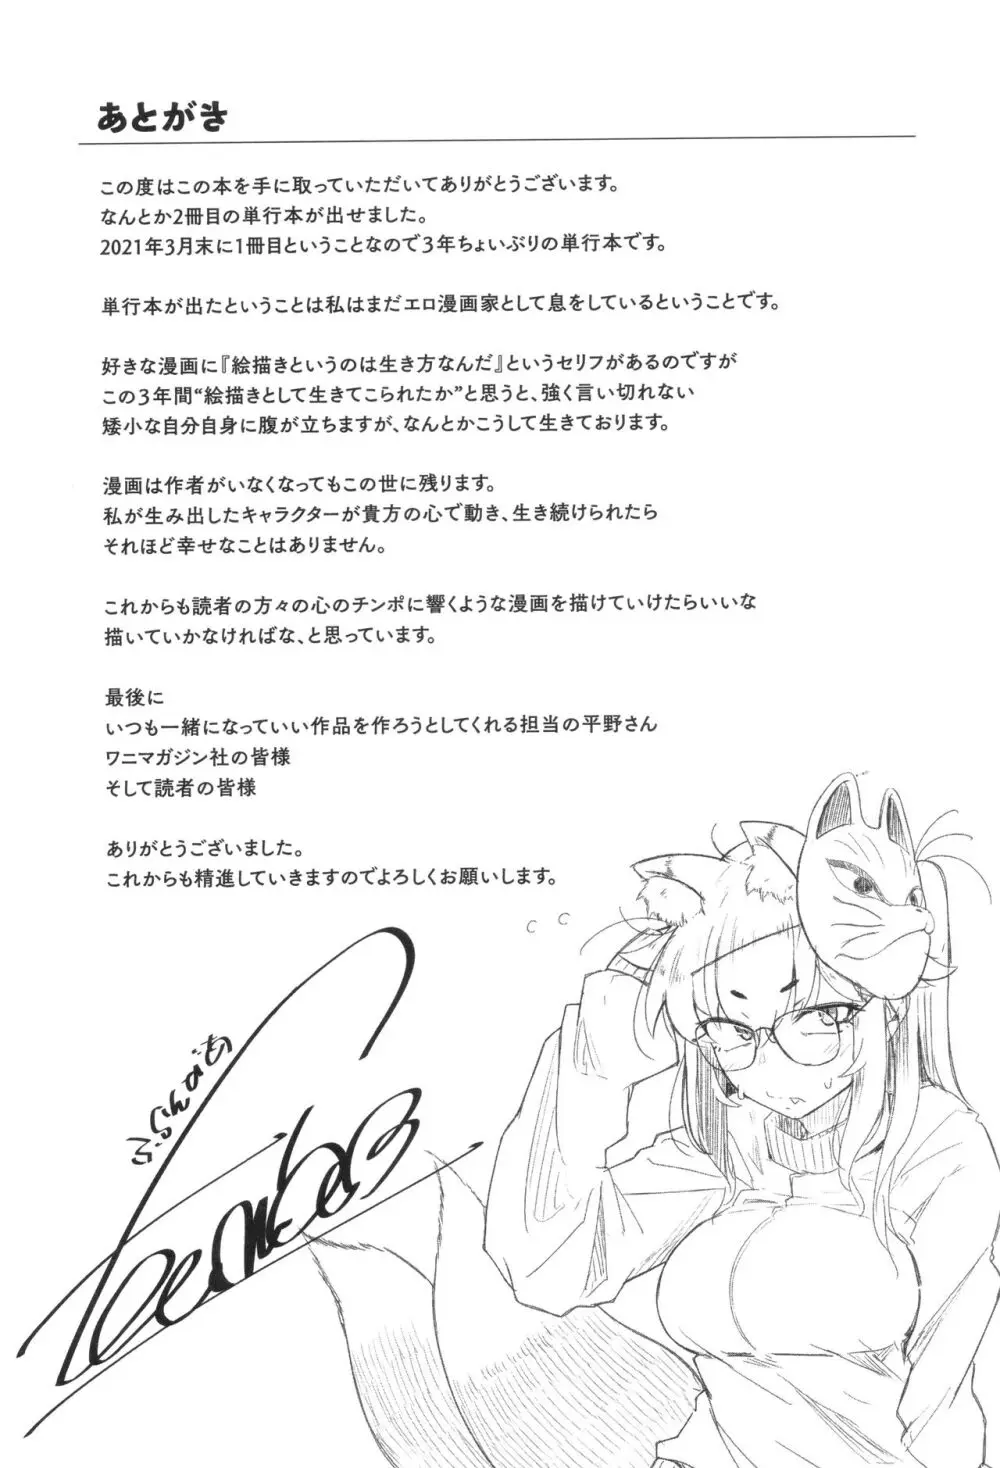 あとがき
この度はこの本を手に取っていただいてありがとうございます。
なんとか2冊目の単行本が出せました。
2021年3月末に1冊目ということなので3年ちょいぶりの単行本です。
単行本が出たということは私はまだエロ漫画家として息をしているということです。
好きな漫画に『絵描きというのは生き方なんだ』というセリフがあるのですが
この3年間“絵描きとして生きてこられたか”と思うと、強く言い切れない
矮小な自分自身に腹が立ちますが、なんとかこうして生きております。
漫画は作者がいなくなってもこの世に残ります。
私が生み出したキャラクターが貴方の心で動き、生き続けられたら
それほど幸せなことはありません。
これからも読者の方々の心のチンポに響くような漫画を描けていけたらいいな
描いていかなければな、と思っています。
最後に
いつも一緒になっていい作品を作ろうとしてくれる担当の平野さん
ワニマガジン社の皆様
そして読者の皆様
ありがとうございました。
これからも精進していきますのでよろしくお願いします。